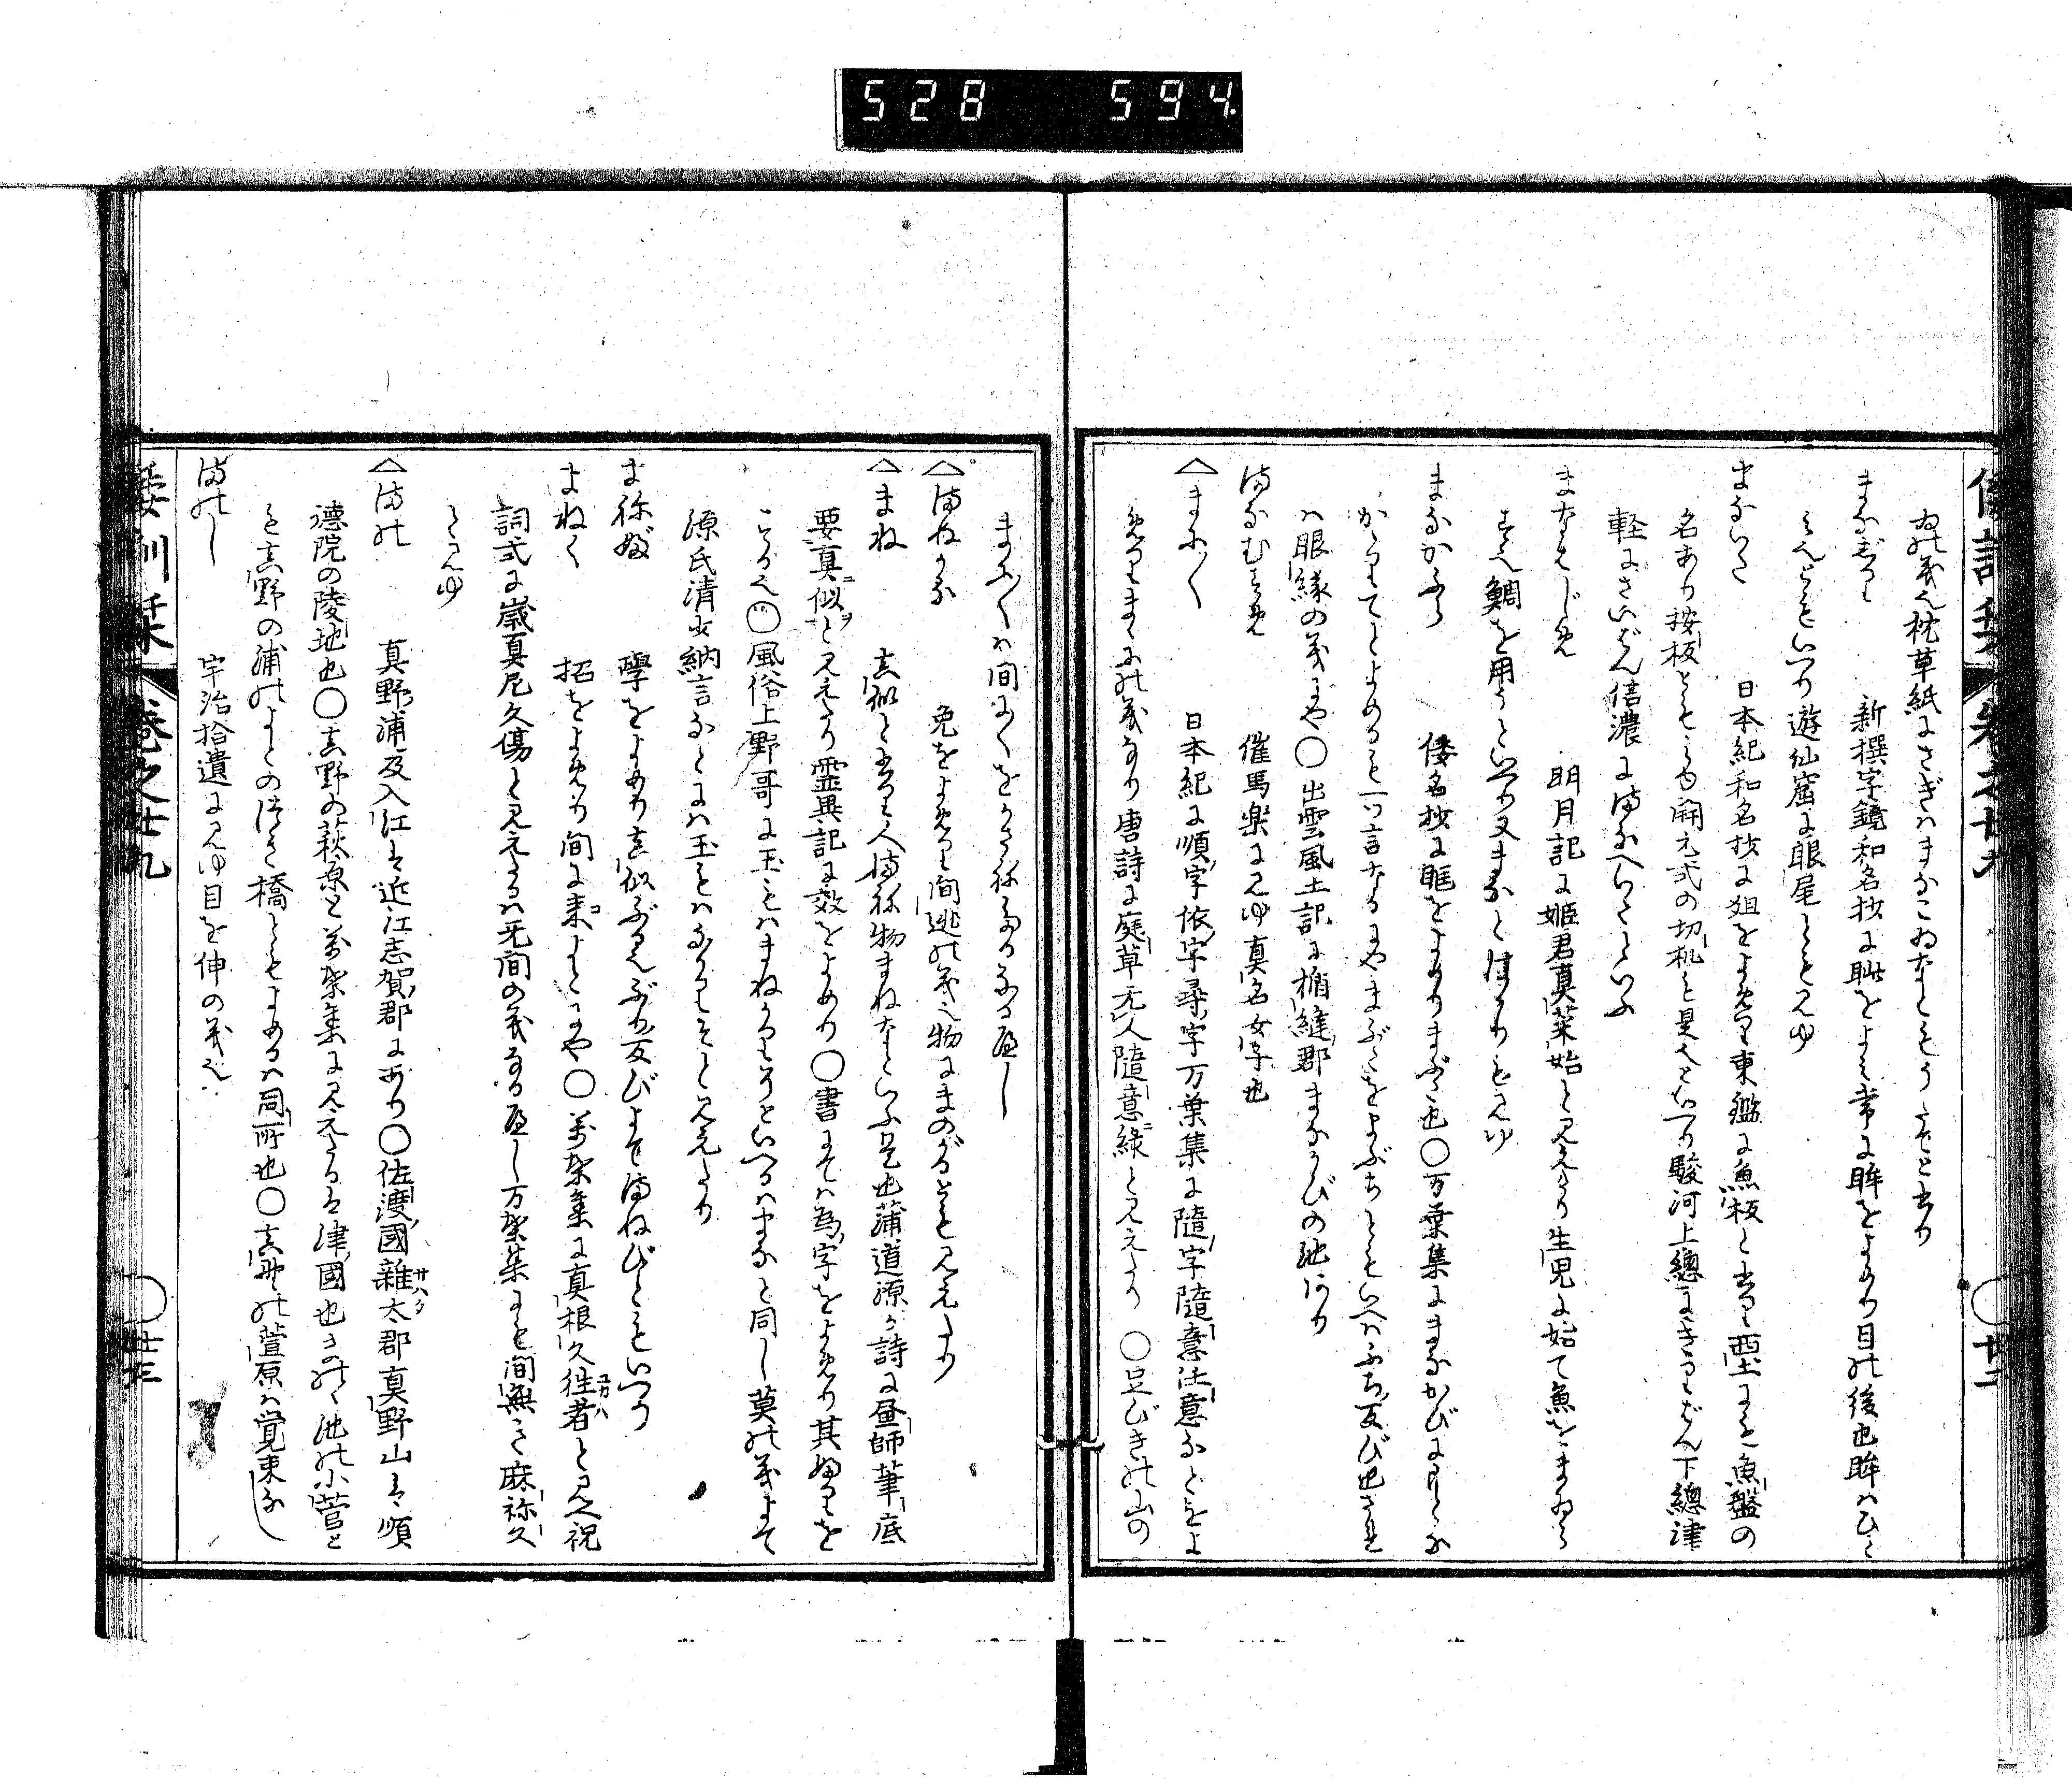 528 594
ゐの義也枕草紙にさぎはまなこゐなともうたてと書り
まなじり 新撰字鏡和名抄に眦をよみ常に眸をよめり目の後也眸はひとみ
みへとていへり遊仙窟に眼尾ともみゆ
まないた 日本紀和名抄に俎をよめり東鑑に魚板と書り西土にも魚盤の
名あり按板ともみゆ開元式の切机も是也といへり駿河上總にきりばん下總津
軽にさいばん信濃にまなへいたといふ
まなはじめ 明月記に姫君真菜始と見えたり生児に始て魚をまゐら
す也鯛を用うといへり又まなとはかりもみゆ
まなかぶら 倭名抄に眶をよめりまぶた也○万葉集にまなかびにもとな
かゝりてとよめるも一つ言なるにやまぶたをまぶちともいへはふち反び也され
は眼縁の義にや○出雲風土記に楯縫郡まなかびの池あり
まなむすめ 催馬楽にみゆ真名女子也
△まに〳〵 日本紀に順字依字尋字万葉集に隨字隨意任意なとをよ
めりまゝにの義なり唐詩に庭草无人隨意緑と見えたり ○足びきの山の
まに〳〵は間に〳〵をかさねたるなる歴し
△まねかな 免をよめり間逃の義也物にまのがるとも見えたり
△まね 真似と書り人まね物まねなといふ是也蒲道源が詩に昼師筆底
要真似と見えたり霊異記に效をよめり○書にては為字をよめり其ふりを
する也○風俗上野哥に玉もはまねかるらりといへるはまなと同し莫の義よて
源氏清少納言なとには玉もはなかりそと見えたり
まねぶ 學をよめり真似ぶ也えぶり反びよてまねびともいへり
まねく 招をよめり間に来よとにや○万葉集に真根久往者と見へ祝
詞式に歳真尼久傷と見えたるは无間の義なる歴し万葉集にも間無き麻祢久
とみゆ
△まの 真野浦及入江は近江志賀郡にあり○佐渡國雜太郡真野山は順
德院の陵地也○真野の萩原と万葉集に見えたるは津國也まのゝ池の小菅と
も真野の浦のよとの継き橋ともよめるは同所也○真野の萱原は覚束なし
まのし 宇治拾遺にみゆ目を伸の義也
倭訓栞 卷之廿九 廿二
倭訓栞 卷之廿九 廿三